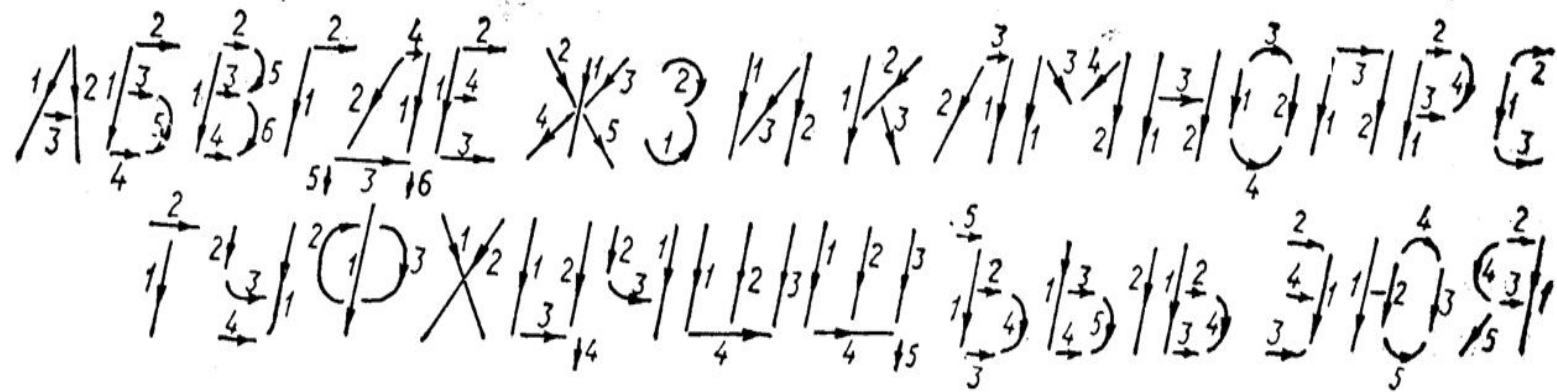 АБВГДЕЖЗИКЛМНОПРС
ТУФХЦЧШЩЪЫЬЭЮЯ